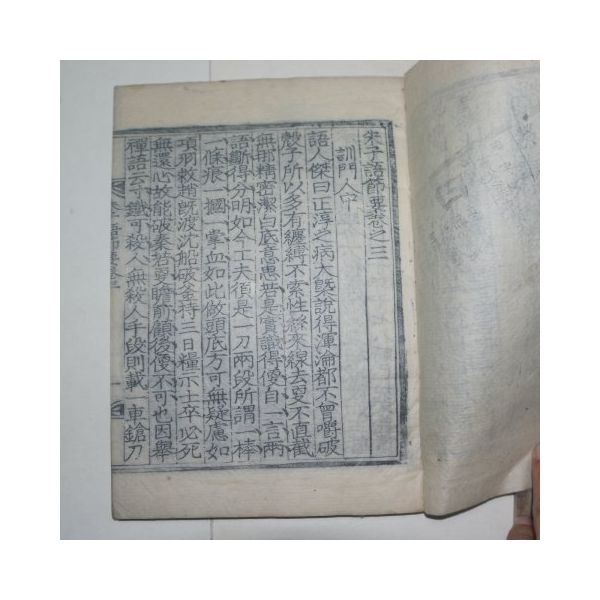 朱子語節要卷之三
訓門人中
語人傑曰正淳之病大旣說得渾淪都不曾嚼破
殼子所以多有纏縛不索性絲來線去更不直截
無那精密潔白底意思若是實識得便自一言兩
語斷得分明如今工夫須是一刀兩段所謂一棒
一條痕一摑一掌血如此做頭底方可無疑慮如
項羽救趙旣渡沈船破釜持三日糧示士卒必死
無還心故能破秦若更瞻前顧後便不可也因擧
禪語云寸鐵可殺人無殺人手段則載一車鎗刀